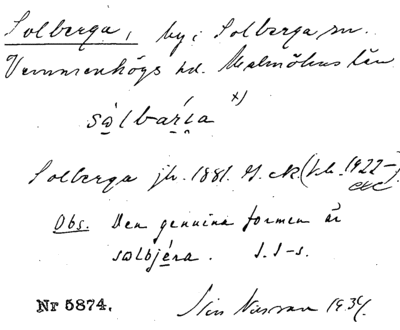 Solberga, by i Solberga sn.
Vemmenhögs hd. Malmöhus län
sò̤lbaŕi̤a x)
Solberga jb. 1881. G. ek (kb. 1922–)
etc
Obs. Den genuina formen är
sɷlbjéra. I. I–s.
Nr 5874. 1934.